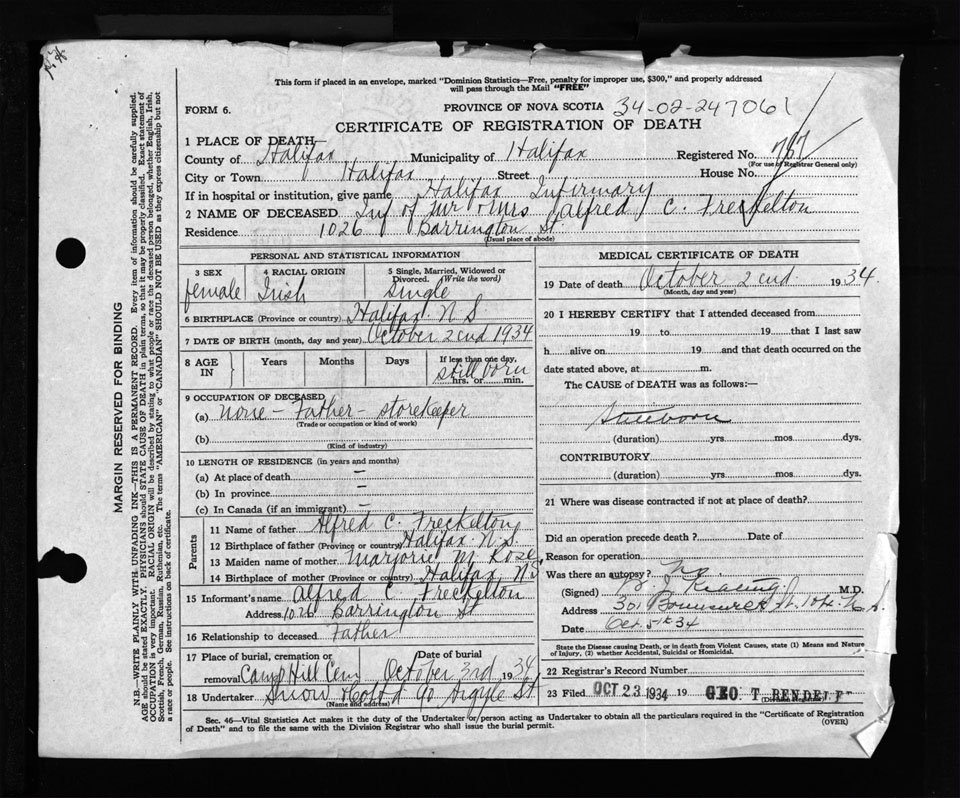 This form if placed in an envelope, marked "Dominion Statistics—Free, penalty for improper use, $300," and properly addressed
will pass through the Mail "FREE"
FORM 6.
PROVINCE OF NOVA SCOTIA 34-02-247061
CERTIFICATE OF REGISTRATION OF DEATH
1 PLACE OF DEATH—
County of Halifax Municipality of Halifax Registered No. 787
(For use of Registrar General only)
City or Town Halifax Street House No.
If in hospital or institution, give name Halifax Infirmary
2 NAME OF DECEASED Inf of Mr & Mrs (Alfred) C. Freckelton
Residence 1026 Barrington St.
(Usual place of abode)
PERSONAL AND STATISTICAL INFORMATION
3 SEX 4 RACIAL ORIGIN 5 Single, Married, Widowed or Divorced. (Write the word)
female Irish Single
6 BIRTHPLACE (Province or country) Halifax N S
7 DATE OF BIRTH (month, day and year) October 2cnd 1934
8 AGE IN Years Months Days If less than one day,
still born
hrs. or min.
9 OCCUPATION OF DECEASED
(a) none - Father - storekeeper
(Trade or occupation or kind of work)
(b)
(Kind of industry)
10 LENGTH OF RESIDENCE (in years and months)
(a) At place of death —
(b) In province —
(c) In Canada (if an immigrant) —
Parents
11 Name of father Alfred C. Freckelton
12 Birthplace of father (Province or country) Halifax N.S.
13 Maiden name of mother Marjorie M. Rose
14 Birthplace of mother (Province or country) Halifax N.S
15 Informant's name Alfred C Freckelton
Address 1026 Barrington St
16 Relationship to deceased Father
17 Place of burial, cremation or removal Date of burial
Camp Hill Cem October 3rd 1934
18 Undertaker Snow & Co Ltd 90 Argyle St
(Name and address)
MEDICAL CERTIFICATE OF DEATH
19 Date of death October 2cnd 1934.
(Month, day and year)
20 I HEREBY CERTIFY that I attended deceased from
19 to 19 that I last saw
h alive on 19 and that death occurred on the
date stated above, at m.
The CAUSE of DEATH was as follows:—
Stillborn
(duration) yrs. mos. dys.
CONTRIBUTORY
(duration) yrs. mos. dys.
21 Where was disease contracted if not at place of death?
Did an operation precede death? Date of
Reason for operation
Was there an autopsy? No
(Signed) M.D.
Address 301 St.
Date Oct. 5th 34
State the Disease causing Death, or in death from Violent Causes, state (1) Means and Nature
of Injury, (2) whether Accidental, Suicidal or Homicidal.
22 Registrar's Record Number
23 Filed OCT 23 1934 19 GEO T. RENDELL
(Division Registrar)
Sec. 46—Vital Statistics Act makes it the duty of the Undertaker or person acting as Undertaker to obtain all the particulars required in the "Certificate of Registration
of Death" and to file the same with the Division Registrar who shall issue the burial permit. (OVER)
MARGIN RESERVED FOR BINDING
N.B.—WRITE PLAINLY WITH UNFADING INK—THIS IS A PERMANENT RECORD. Every item of information should be carefully supplied.
AGE should be stated EXACTLY. PHYSICIANS should STATE CAUSE OF DEATH in plain terms, so that it may be properly classified. Exact statement of
OCCUPATION is very important. RACIAL ORIGIN will be described by stating to what people or race the deceased person belonged, whether English, Irish,
Scottish, French, German, Russian, Ruthenian, etc. The terms "AMERICAN" or "CANADIAN" SHOULD NOT BE USED as they express citizenship but not
a race or people. See instructions on back of certificate.